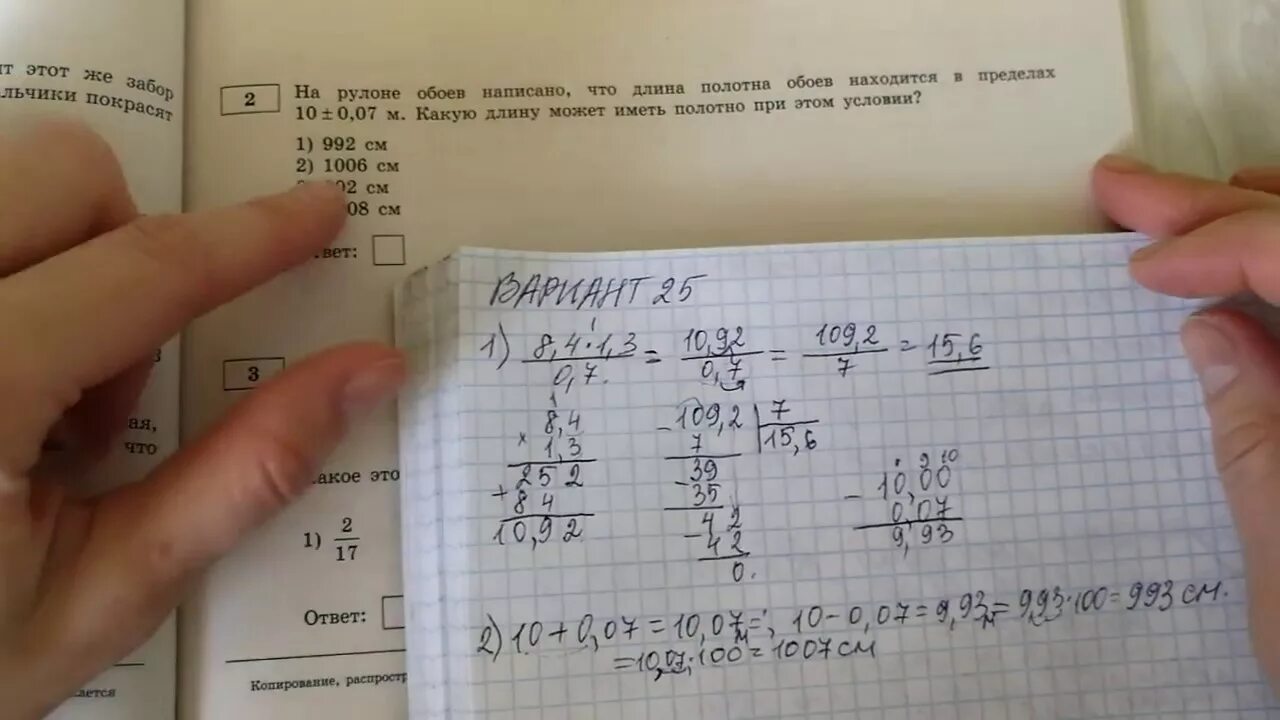 ит этот же забор
льчики покрасят
2
На рулоне обоев написано, что длина полотна обоев находится в пределах
10 ± 0,07 м. Какую длину может иметь полотно при этом условии?
1) 992 см
2) 1006 см
02 см
08 см
вет:
3
ая,
что
акое это
1) 2/17
Ответ:
Копирование, распростр
ается
ВАРИАНТ 25
1) 8,4·1,3 / 0,7 = 10,92 / 0,7 = 109,2 / 7 = 15,6
8,4
× 1,3
252
+ 84
10,92
- 109,2 | 7
7 15,6
- 39
35
- 42
42
0.
9 10
- 10,00
0,07
9,93
2) 10 + 0,07 = 10,07 м = ; 10 - 0,07 = 9,93 м = 9,93·100 = 993 см.
= 10,07·100 = 1007 см